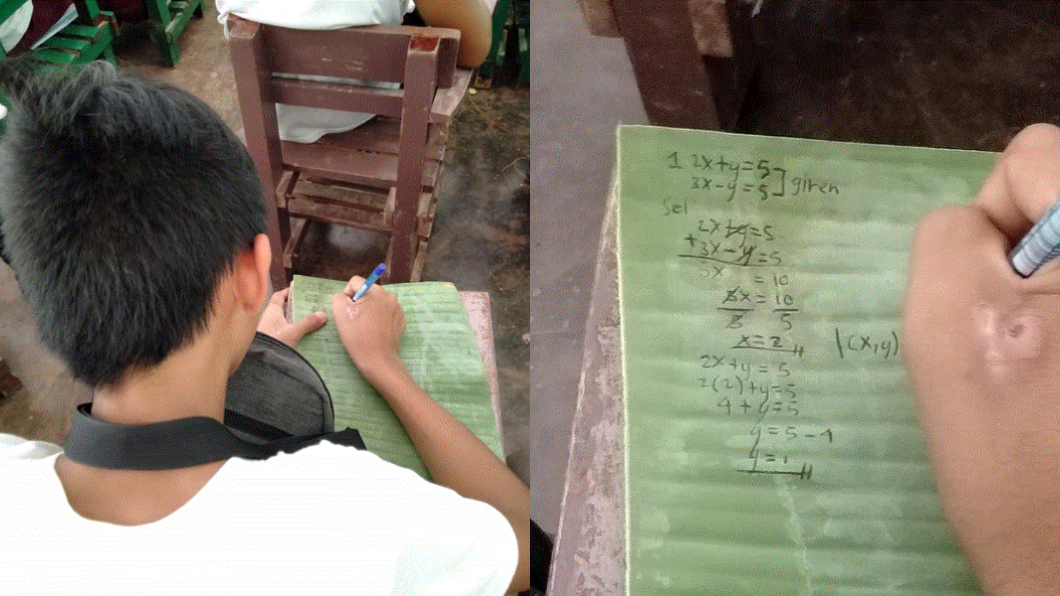 1. 2x+y=5
3x-y=5 ] given
Sol
2x+y=5
+3x-y=5
5x = 10
5x = 10
5 5
x=2
|(x,y)
2x+y=5
2(2)+y=5
4+y=5
y=5-4
y=1